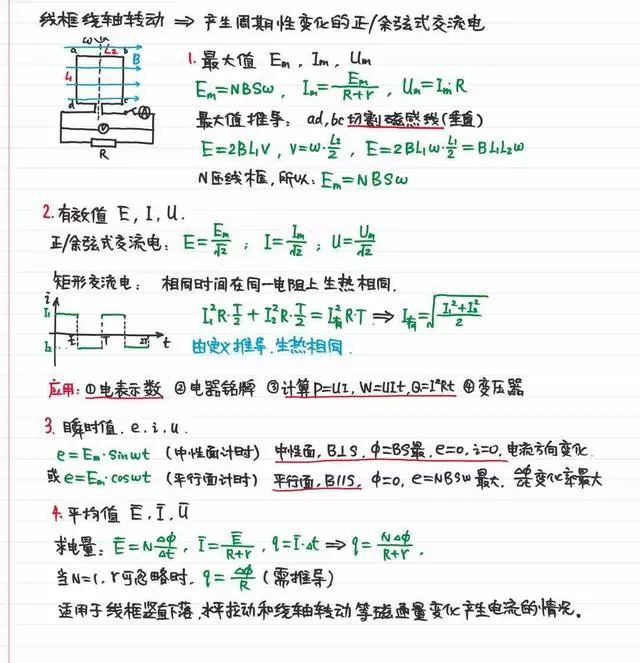 线框绕轴转动 ⇒ 产生周期性变化的正/余弦式交流电
ω
a L2 b
B
L1
d c
A
V
R
1. 最大值 Em, Im, Um
Em=NBSω, Im=Em/(R+r), Um=Im·R
最大值推导: ad, bc切割磁感线(垂直)
E=2BL1v, v=ω·L2/2, E=2BL1ω·L2/2=BL1L2ω
N匝线框, 所以: Em=NBSω
2. 有效值 E, I, U.
正/余弦式交流电: E=Em/√2 ; I=Im/√2 ; U=Um/√2
矩形交流电: 相同时间在同一电阻上生热相同.
i
I1
I2
T/2 T 2T t
I1²R·T/2+I2²R·T/2=I有²R·T ⇒ I有=√((I1²+I2²)/2)
由定义推导.生热相同.
应用: ①电表示数 ②电器铭牌 ③计算P=UI, W=UIt, Q=I²Rt ④变压器
3. 瞬时值. e. i. u.
e=Em·sinωt (中性面计时) 中性面, B⊥S, ϕ=BS最, e=0, i=0, 电流方向变化.
或e=Em·cosωt (平行面计时) 平行面, B∥S, ϕ=0, e=NBSω最大, Δϕ/Δt变化率最大
4. 平均值 Ē, Ī, Ū
求电量: Ē=NΔϕ/Δt, Ī=Ē/(R+r), q=Ī·Δt ⇒ q=NΔϕ/(R+r).
当N=1, r可忽略时, q=Δϕ/R (需推导)
适用于线框竖直下落, 水平拉动和绕轴转动等磁通量变化产生电流的情况。